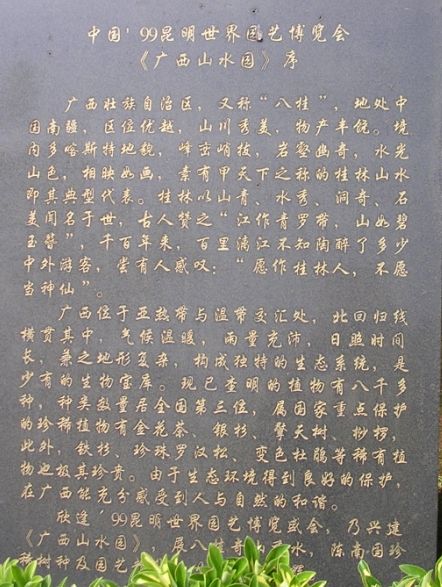 中国'99昆明世界园艺博览会
《广西山水园》序
广西壮族自治区，又称“八桂”，地处中
国南疆，区位优越，山川秀美，物产丰饶。境
内多喀斯特地貌，峰峦峭拔，岩壑幽奇，水光
山色，相映如画，素有甲天下之称的桂林山水
即其典型代表。桂林以山青、水秀、洞奇、石
美闻名于世，古人赞之“江作青罗带，山如碧
玉篸”，千百年来，百里漓江不知陶醉了多少
中外游客，尝有人感叹：“愿作桂林人，不愿
当神仙”。
广西位于亚热带与温带交汇处，北回归线
横贯其中，气候温暖，雨量充沛，日照时间
长，兼之地形复杂，构成独特的生态系统，是
少有的生物宝库。现已查明的植物有八千多
种，种类数量居全国第三位，属国家重点保护
的珍稀植物有金花茶、银杉、擎天树、桫椤，
此外，铁杉、珍珠罗汉松、变色杜鹃等稀有植
物也极其珍贵。由于生态环境得到良好的保护，
在广西能充分感受到人与自然的和谐。
欣逢'99昆明世界园艺博览盛会，乃兴建
《广西山水园》，展八桂奇山秀水，陈南国珍
稀树种及园艺